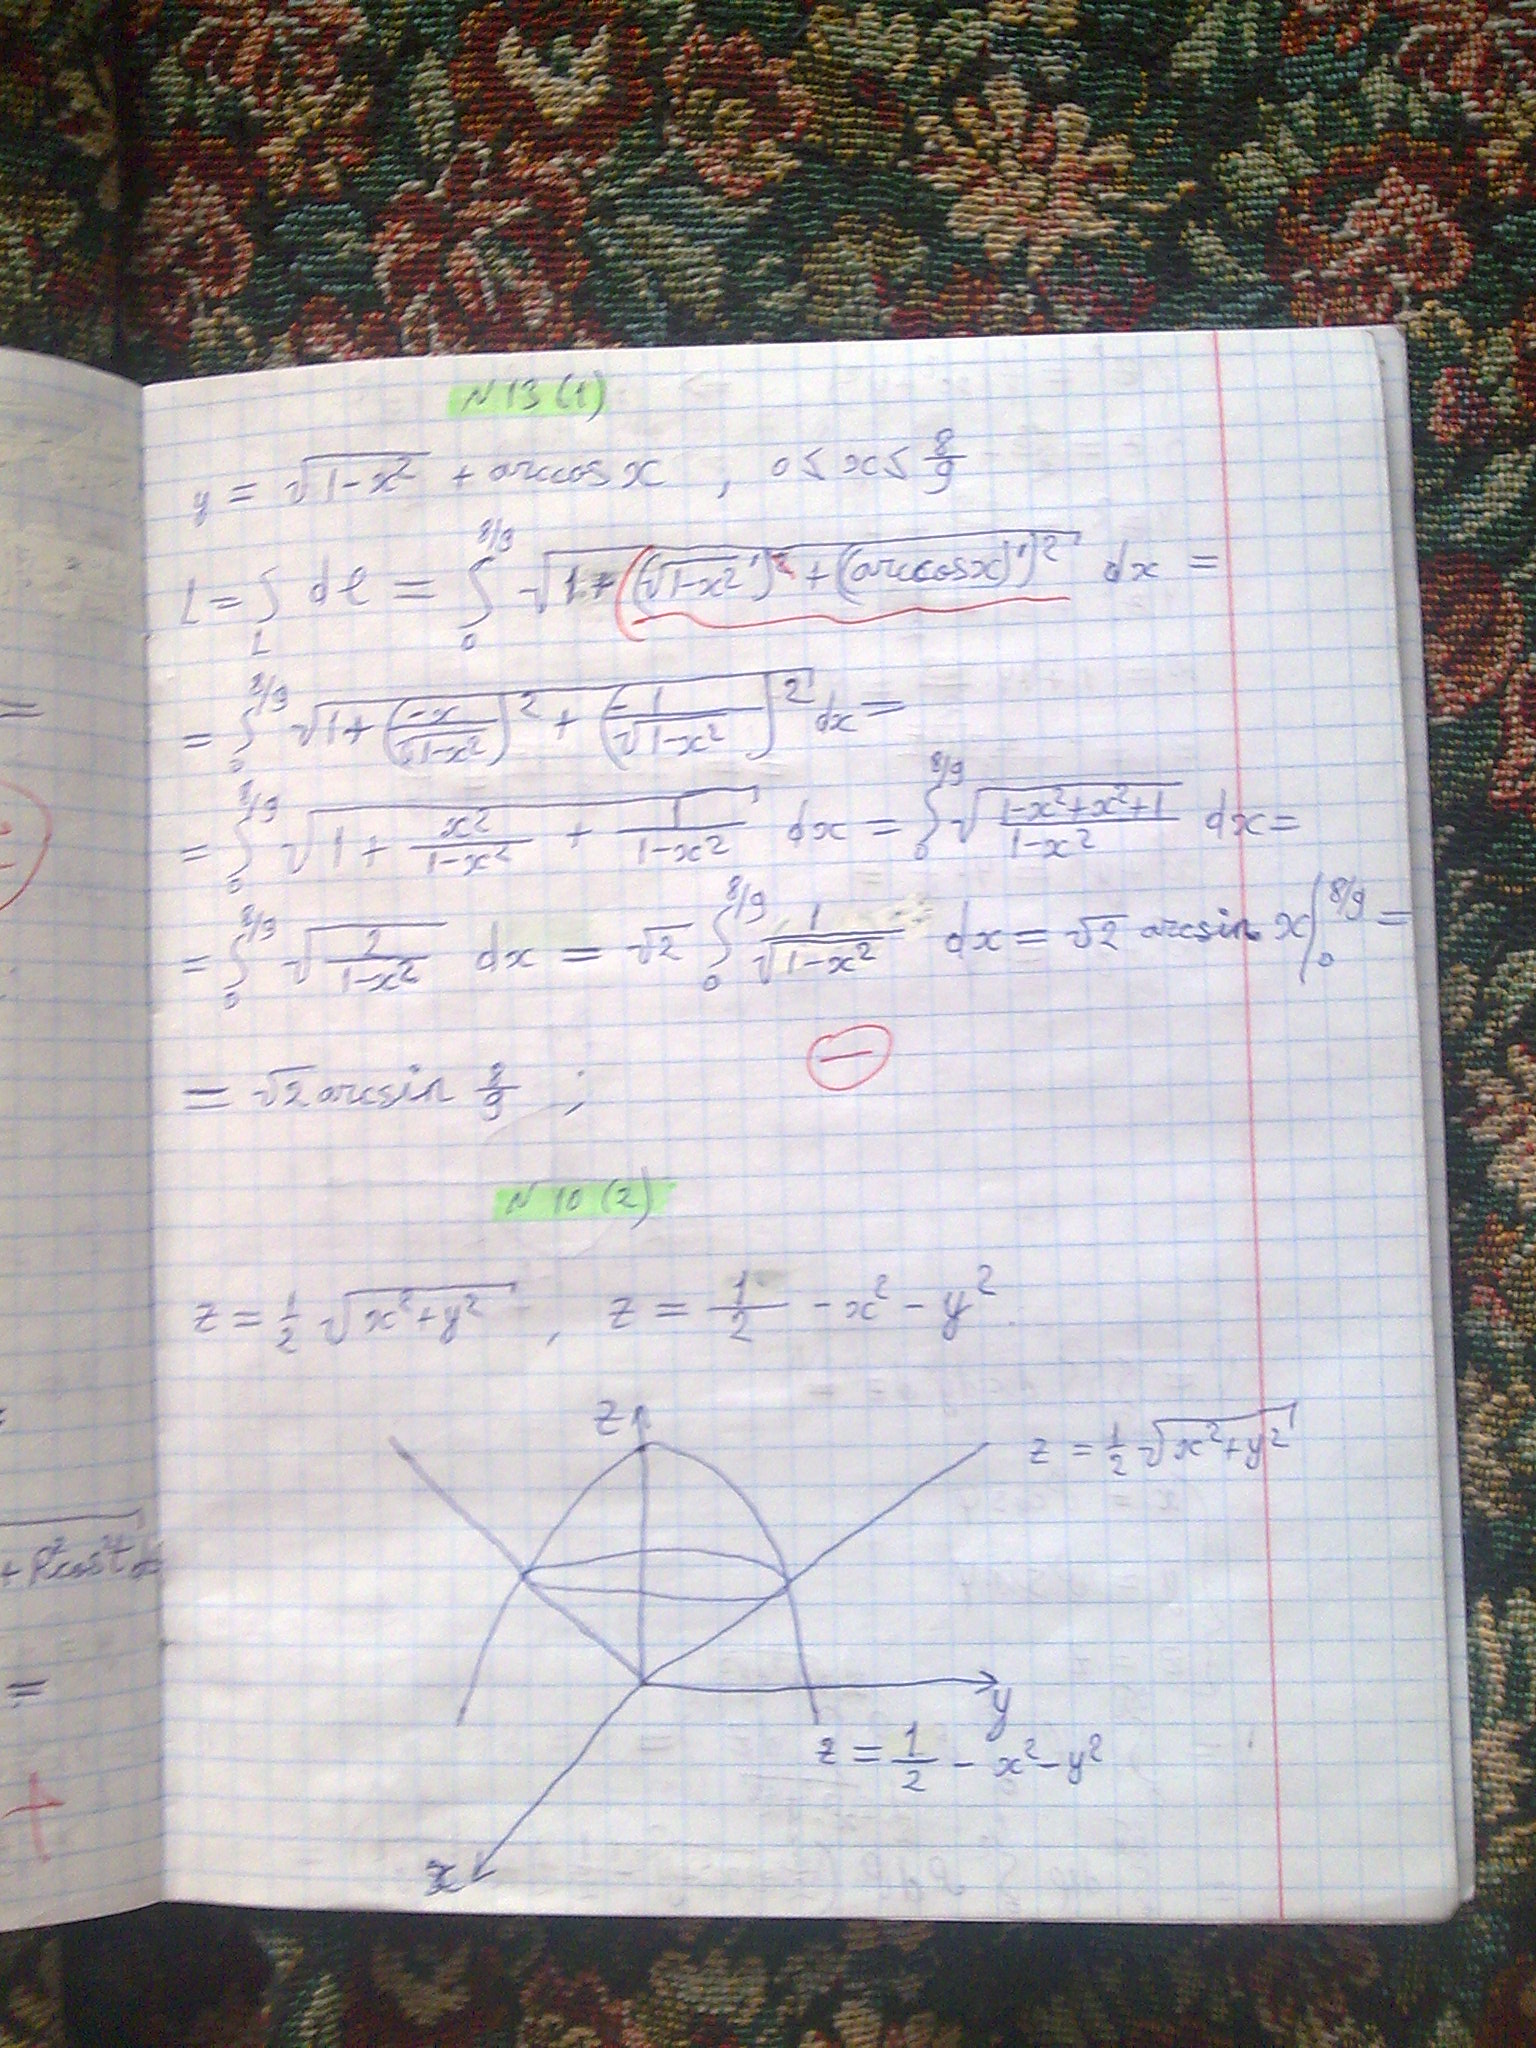 N 13 (1)
y = √(1-x²) + arccos x , 0 ≤ x ≤ 8/9
L = ∫_L dl = ∫_0^{8/9} √(1 + ((√(1-x²))')² + ((arccosx)')²) dx =
= ∫_0^{8/9} √(1 + (-x/√(1-x²))² + (-1/√(1-x²))²) dx =
= ∫_0^{8/9} √(1 + x²/(1-x²) + 1/(1-x²)) dx = ∫_0^{8/9} √((1-x²+x²+1)/(1-x²)) dx =
= ∫_0^{8/9} √(2/(1-x²)) dx = √2 ∫_0^{8/9} 1/√(1-x²) dx = √2 arcsin x |_0^{8/9} =
−
= √2 arcsin 8/9 ;
N 10 (2)
z = 1/2 √(x²+y²) , z = 1/2 - x² - y² .
z
z = 1/2 √(x²+y²)
y
z = 1/2 - x² - y²
x
=
=
+